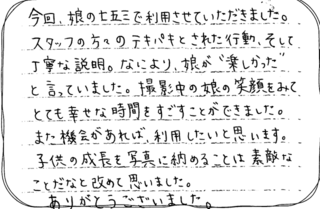 今回、娘の七五三で利用させていただきました。
スタッフの方々のテキパキとされた行動、そして
丁寧な説明。なにより、娘が"楽しかった"
と言っていました。撮影中の娘の笑顔をみて
とても幸せな時間をすごすことができました。
また機会があれば、利用したいと思います。
子供の成長を写真に納めることは素敵な
ことだなと改めて思いました。
ありがとうございました。